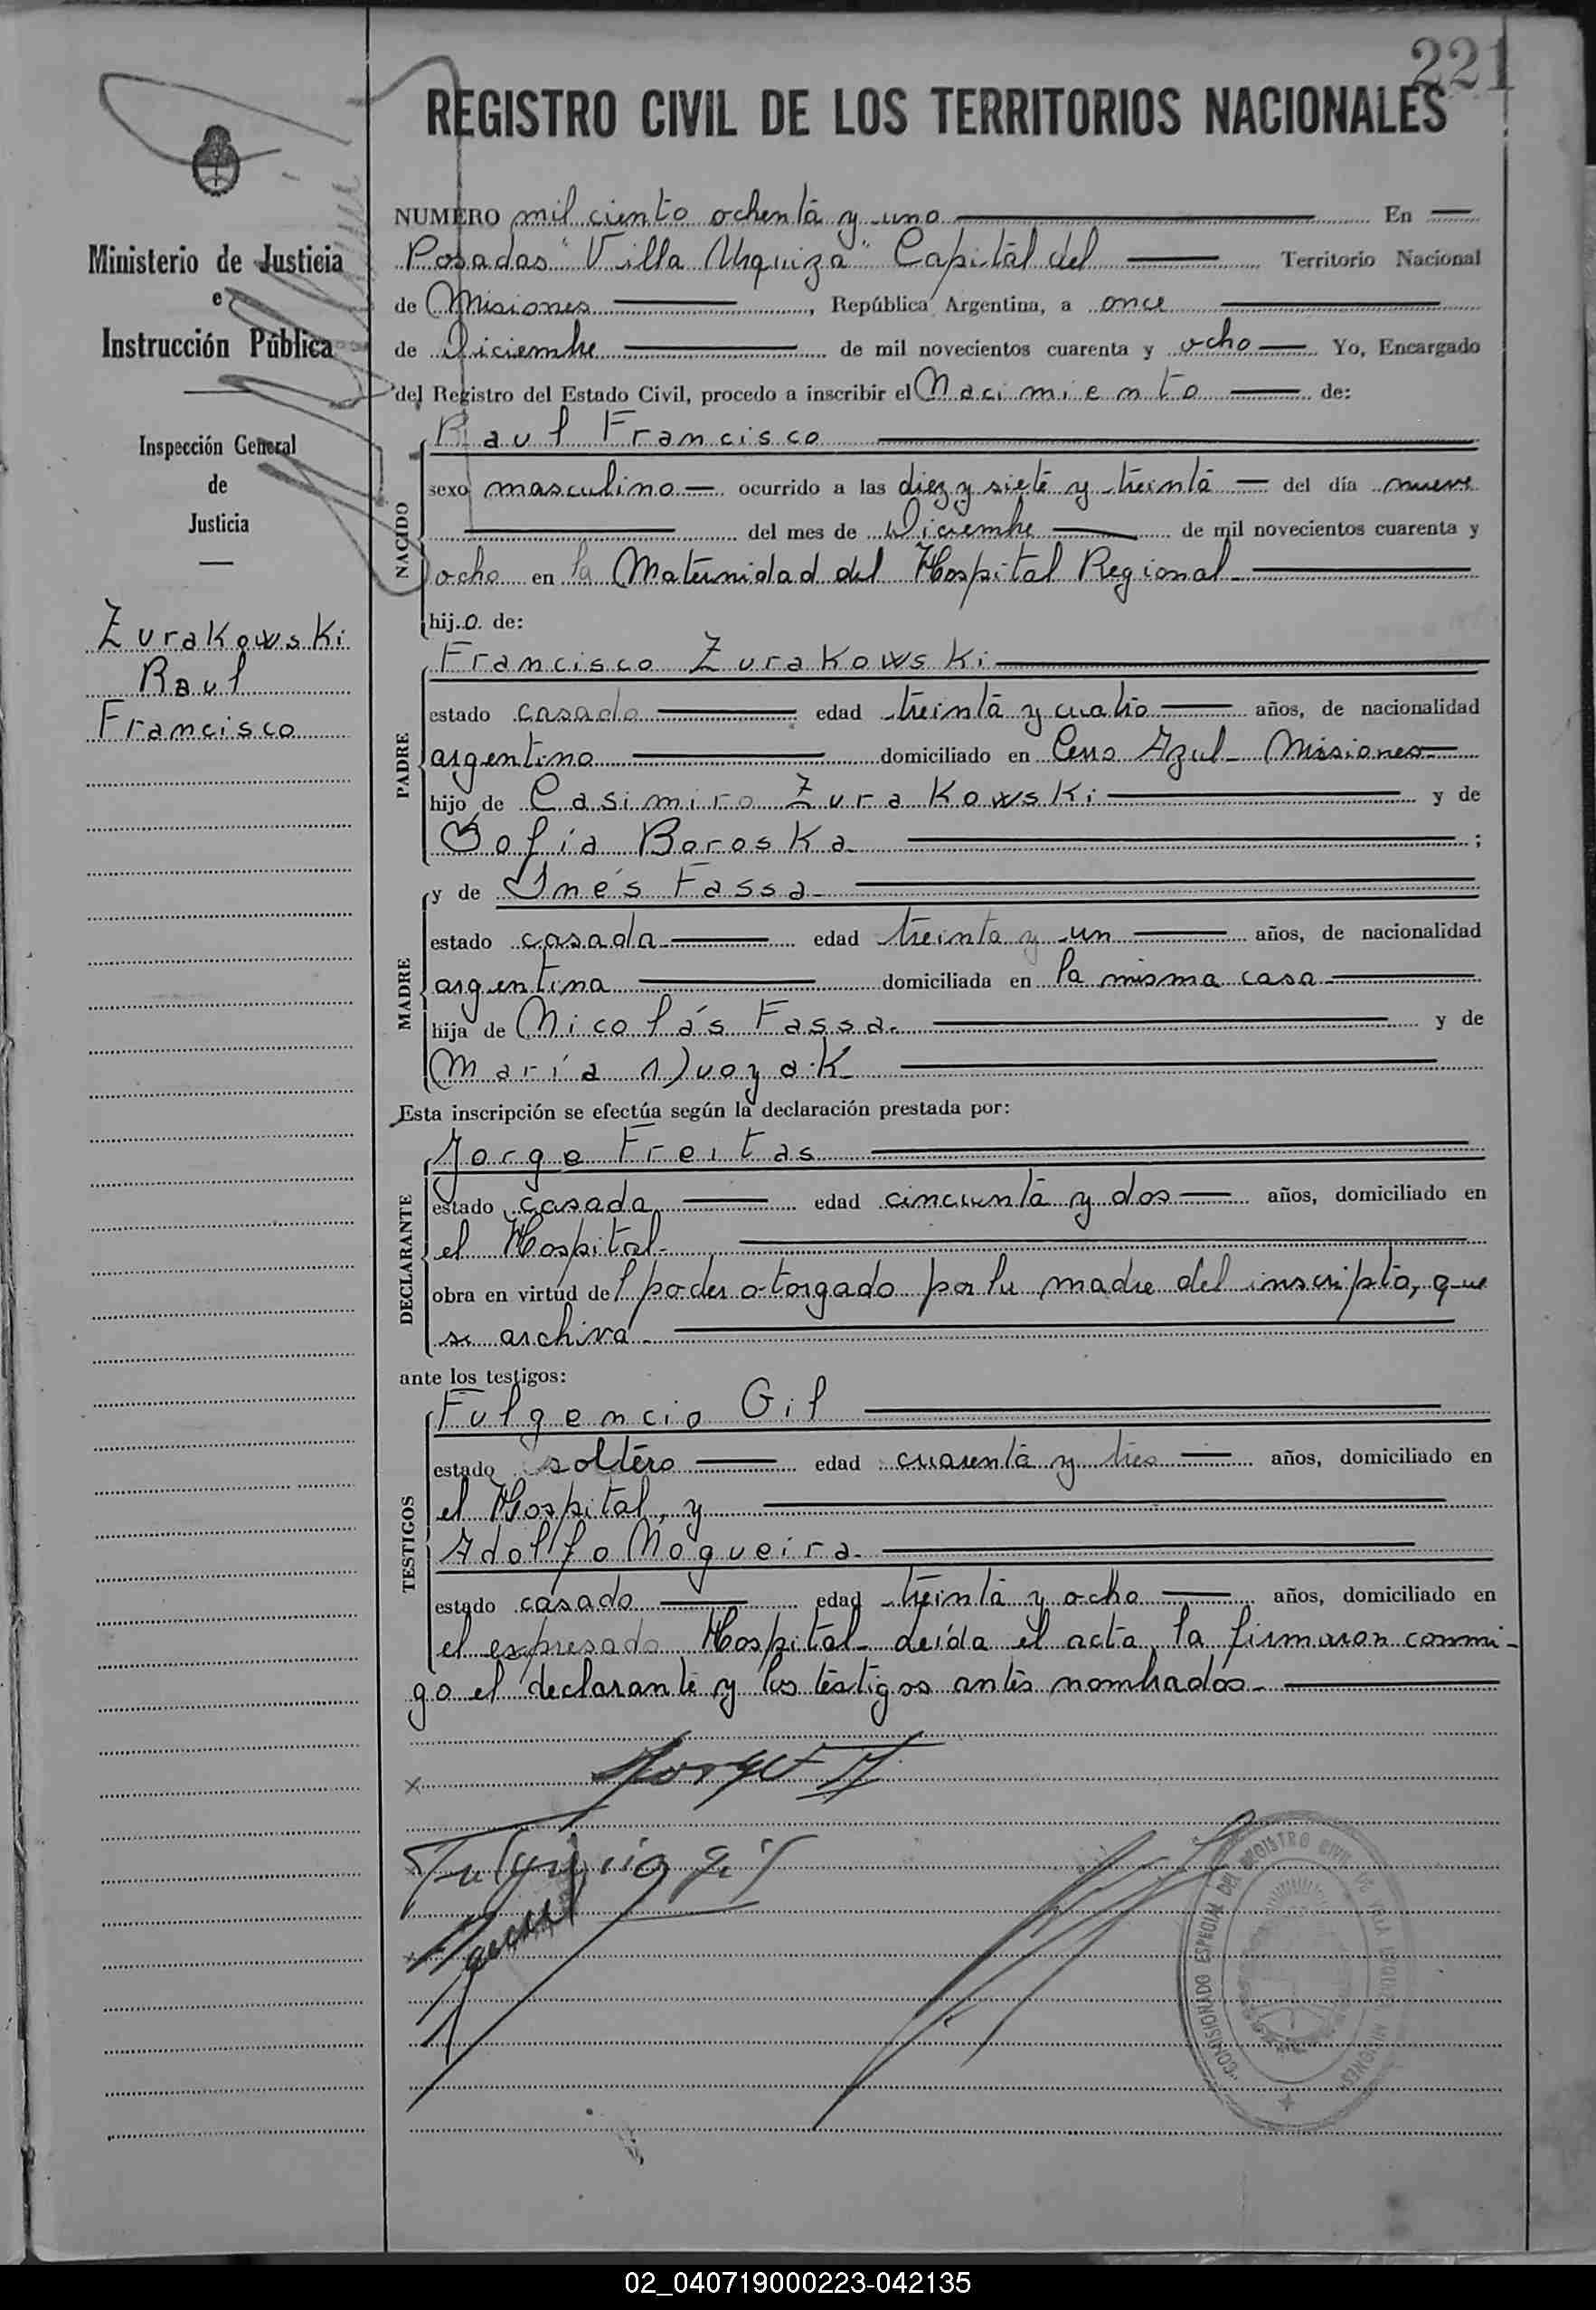 221
REGISTRO CIVIL DE LOS TERRITORIOS NACIONALES
Ministerio de Justicia
e
Instrucción Pública
Inspección General
de
Justicia
Zurakowski
Raul
Francisco
NUMERO mil ciento ochenta y uno En
Posadas "Villa Urquiza" Capital del Territorio Nacional
de Misiones, República Argentina, a once
de Diciembre de mil novecientos cuarenta y ocho Yo, Encargado
del Registro del Estado Civil, procedo a inscribir el Nacimiento de:
NACIDO
Raul Francisco
sexo masculino ocurrido a las diez y siete y treinta del día nueve
del mes de Diciembre de mil novecientos cuarenta y
ocho en la Maternidad del Hospital Regional
hijo de:
PADRE
Francisco Zurakowski
estado casado edad treinta y cuatro años, de nacionalidad
argentino domiciliado en Cerro Azul - Misiones
hijo de Casimiro Zurakowski y de
Sofía Boroska ;
MADRE
y de Inés Fassa
estado casada edad treinta y un años, de nacionalidad
argentina domiciliada en la misma casa
hija de Nicolás Fassa y de
María Dvozak
Esta inscripción se efectúa según la declaración prestada por:
DECLARANTE
Jorge Freitas
estado casado edad cincuenta y dos años, domiciliado en
el Hospital
obra en virtud del poder otorgado por la madre del inscripto, que
se archiva
ante los testigos:
TESTIGOS
Fulgencio Gil
estado soltero edad cuarenta y tres años, domiciliado en
el Hospital, y
Adolfo Nogueira
estado casado edad treinta y ocho años, domiciliado en
el expresado Hospital - leída el acta, la firmaron conmi-
go el declarante y los testigos antes nombrados
x Jorge F
x Fulgencio Gil
x
COMISIONADO ESPECIAL DEL REGISTRO CIVIL DE VILLA URQUIZA MISIONES
02_040719000223-042135